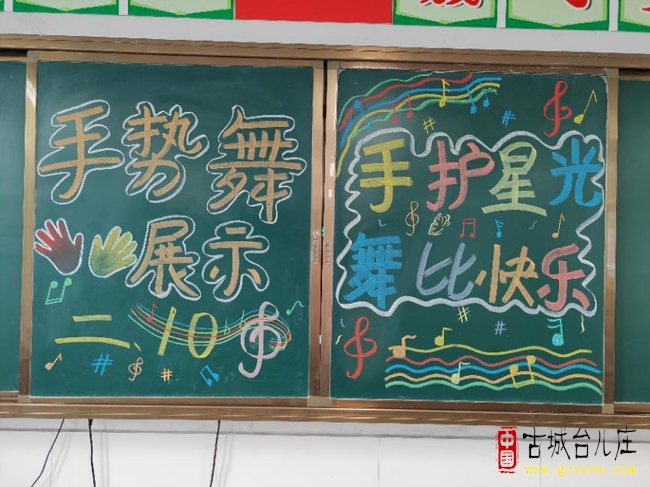 手势舞
展示
二、10
手护星光
舞比快乐
中国
古城台儿庄